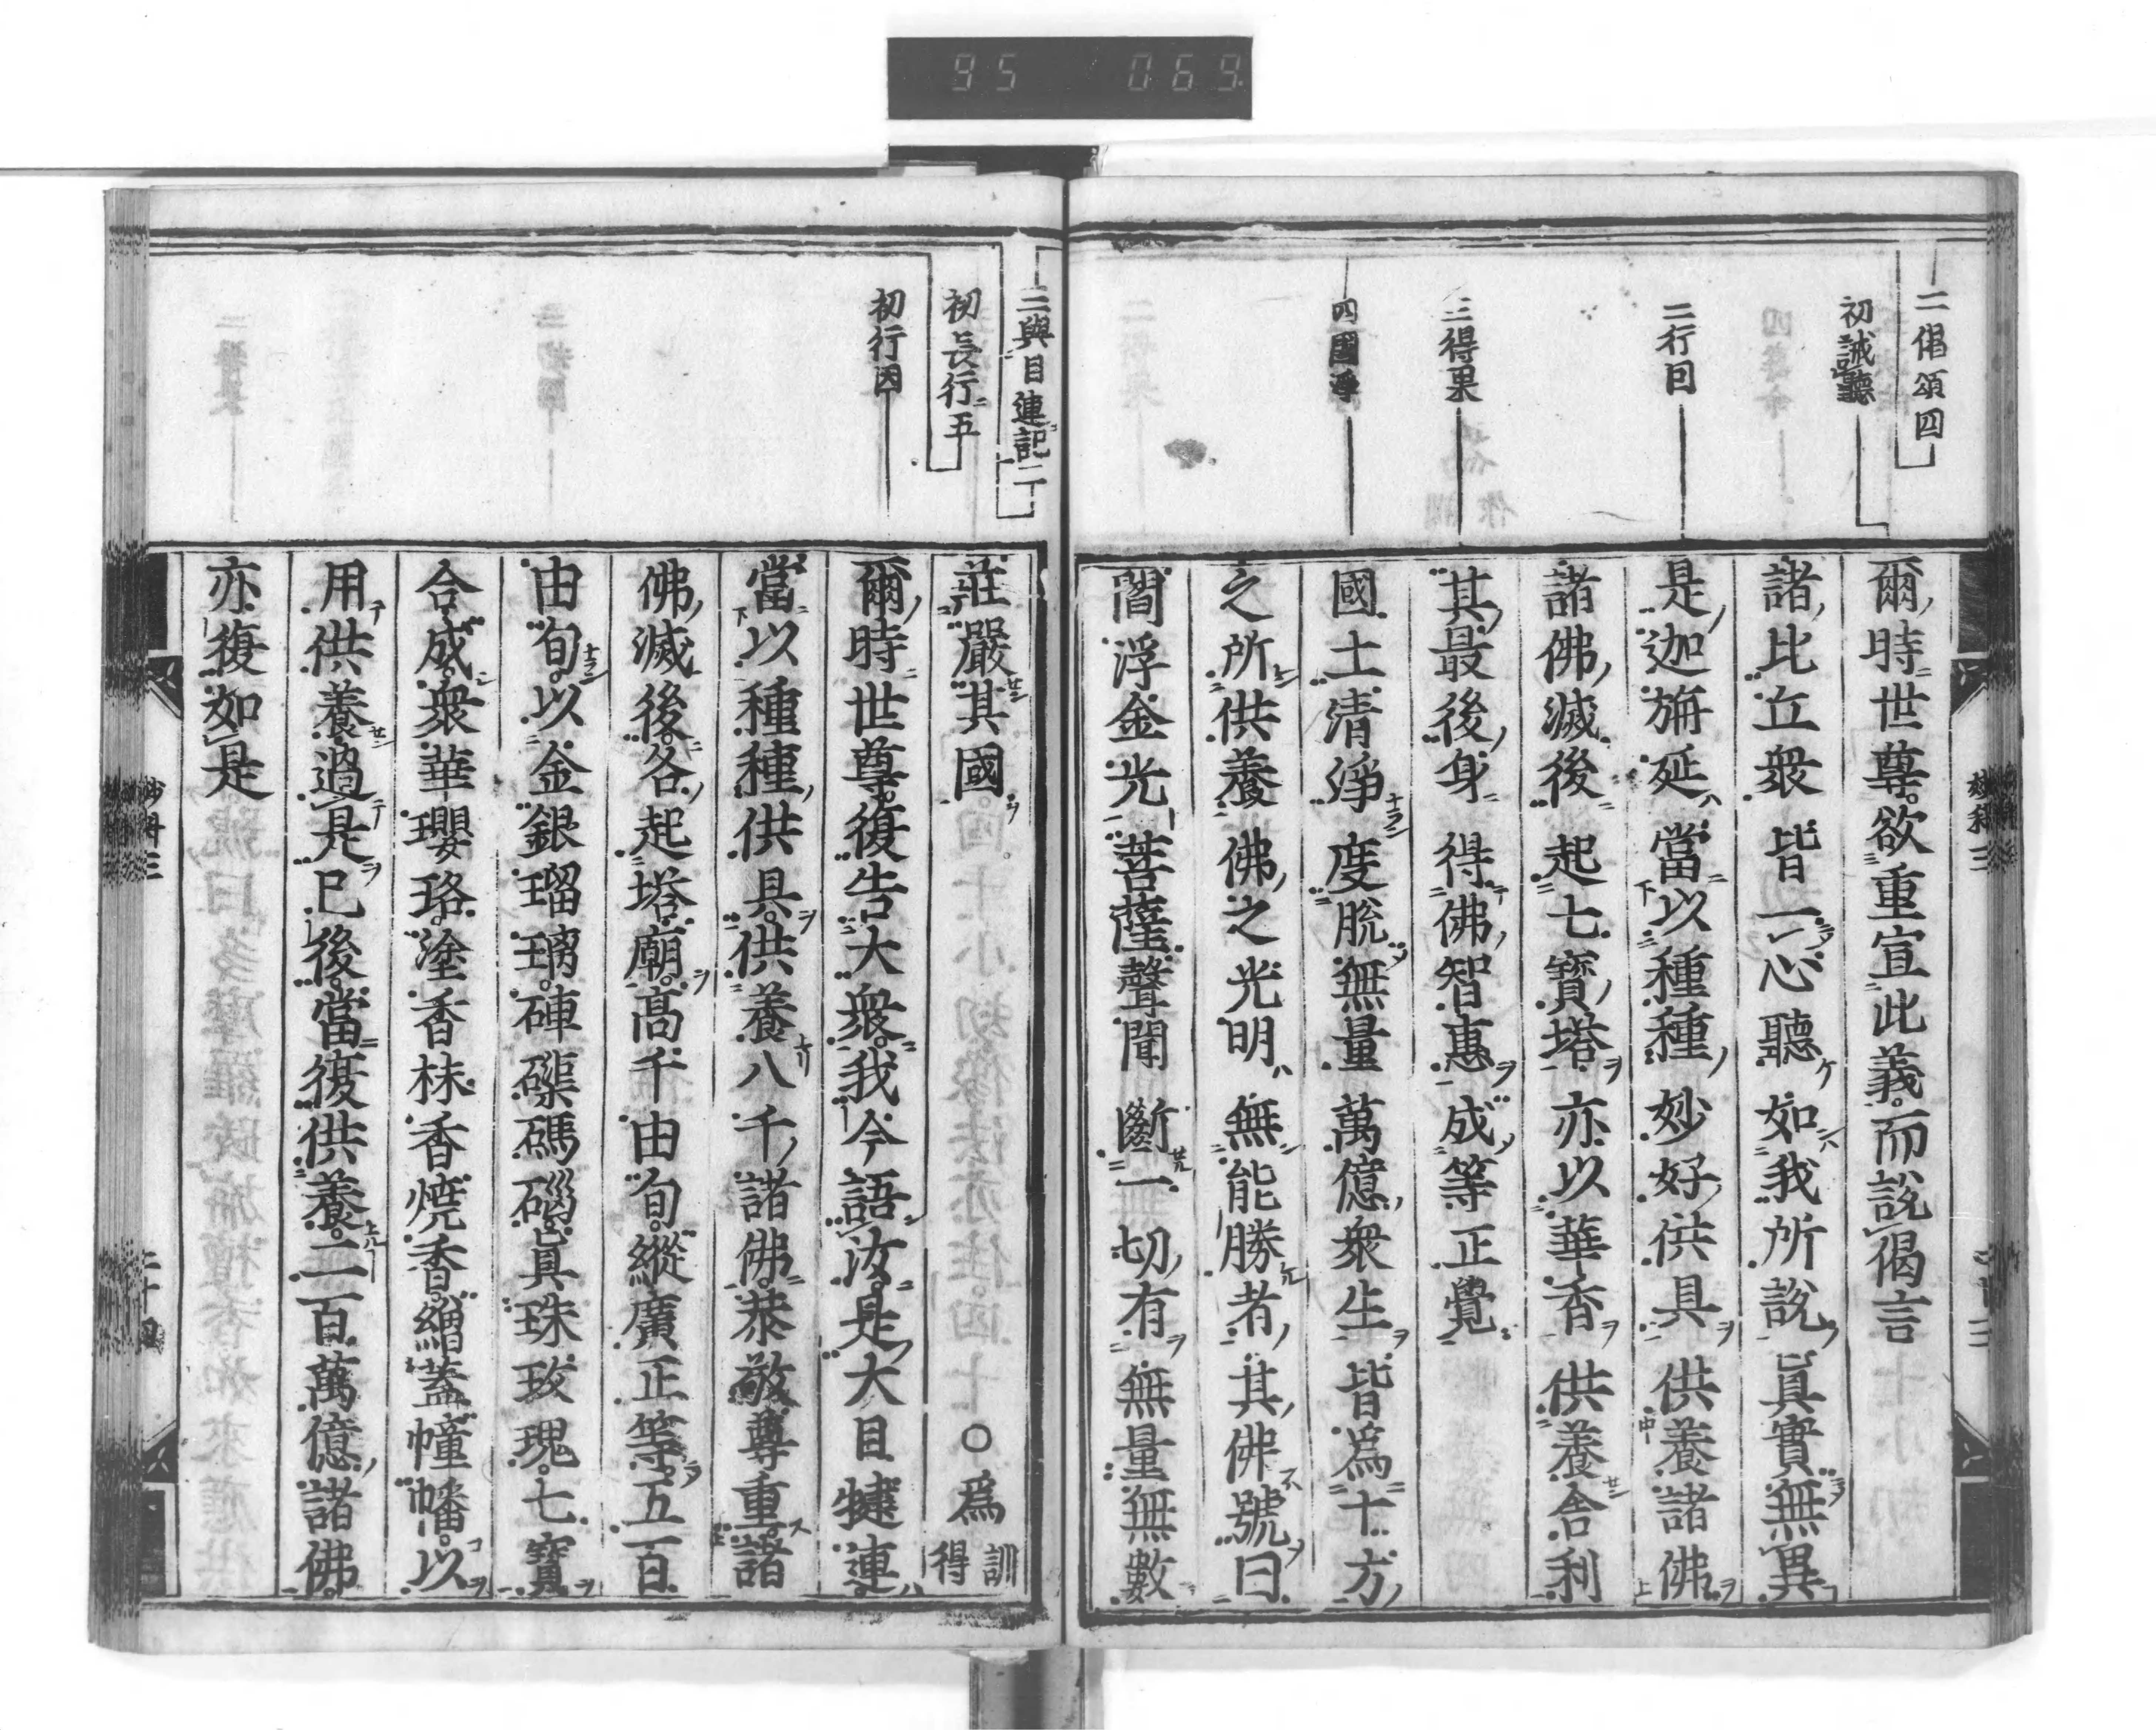 95 069
二偈頌四
初誡聽
二行因
三得果
四國淨
爾時世尊欲重宣此義而說偈言
諸比丘衆 皆一心聽 如我所說 眞實無異
是迦旃延 當以種種 妙好供具 供養諸佛
諸佛滅後 起七寶塔 亦以華香 供養舍利
其最後身 得佛智惠 成等正覺
國土清淨 度脫無量 萬億衆生 皆爲十方
之所供養 佛之光明 無能勝者 其佛號曰
閻浮金光 菩薩聲聞 斷一切有 無量無數
三與目連記二
初長行五
初行因
莊嚴其國 ○爲 訓得
爾時世尊復告大衆我今語汝是大目犍連
當以種種供具供養八千諸佛恭敬尊重諸
佛滅後各起塔廟高千由旬縱廣正等五百
由旬以金銀瑠璃硨磲碼碯眞珠玫瑰七寶
合成衆華瓔珞塗香抹香燒香繒蓋幢幡以
用供養過是已後當復供養二百萬億諸佛
亦復如是